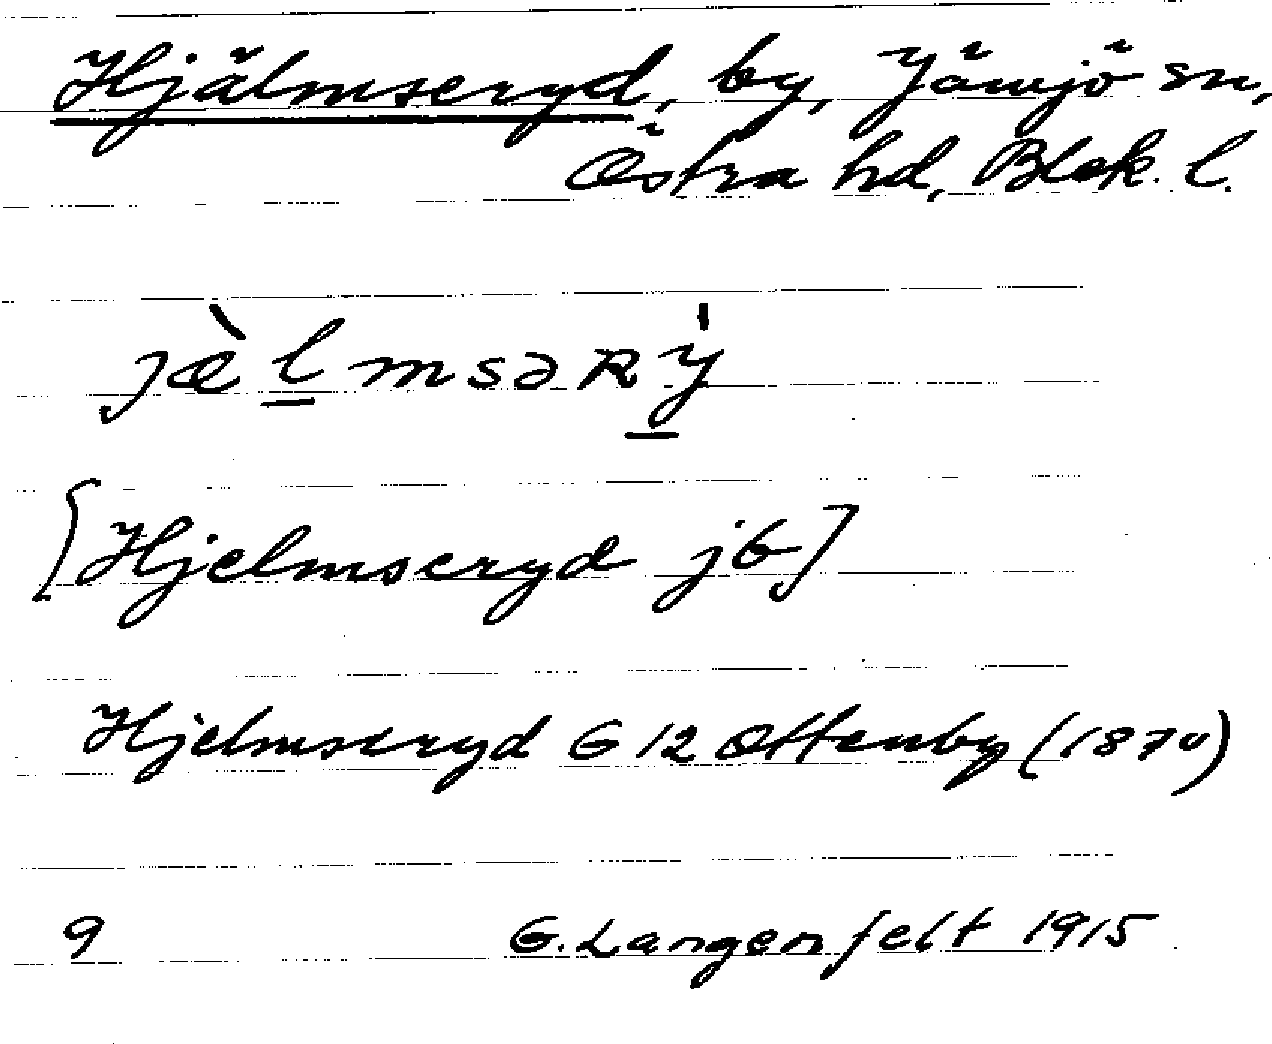 Hjälmseryd, by, Jämjö sn,
Östra hd, Blek. l.
jæ̀l̲msəRy̲̍
[Hjelmseryd jb]
Hjelmseryd G 12 Ottenby (1870)
9 G. Langenfelt 1915